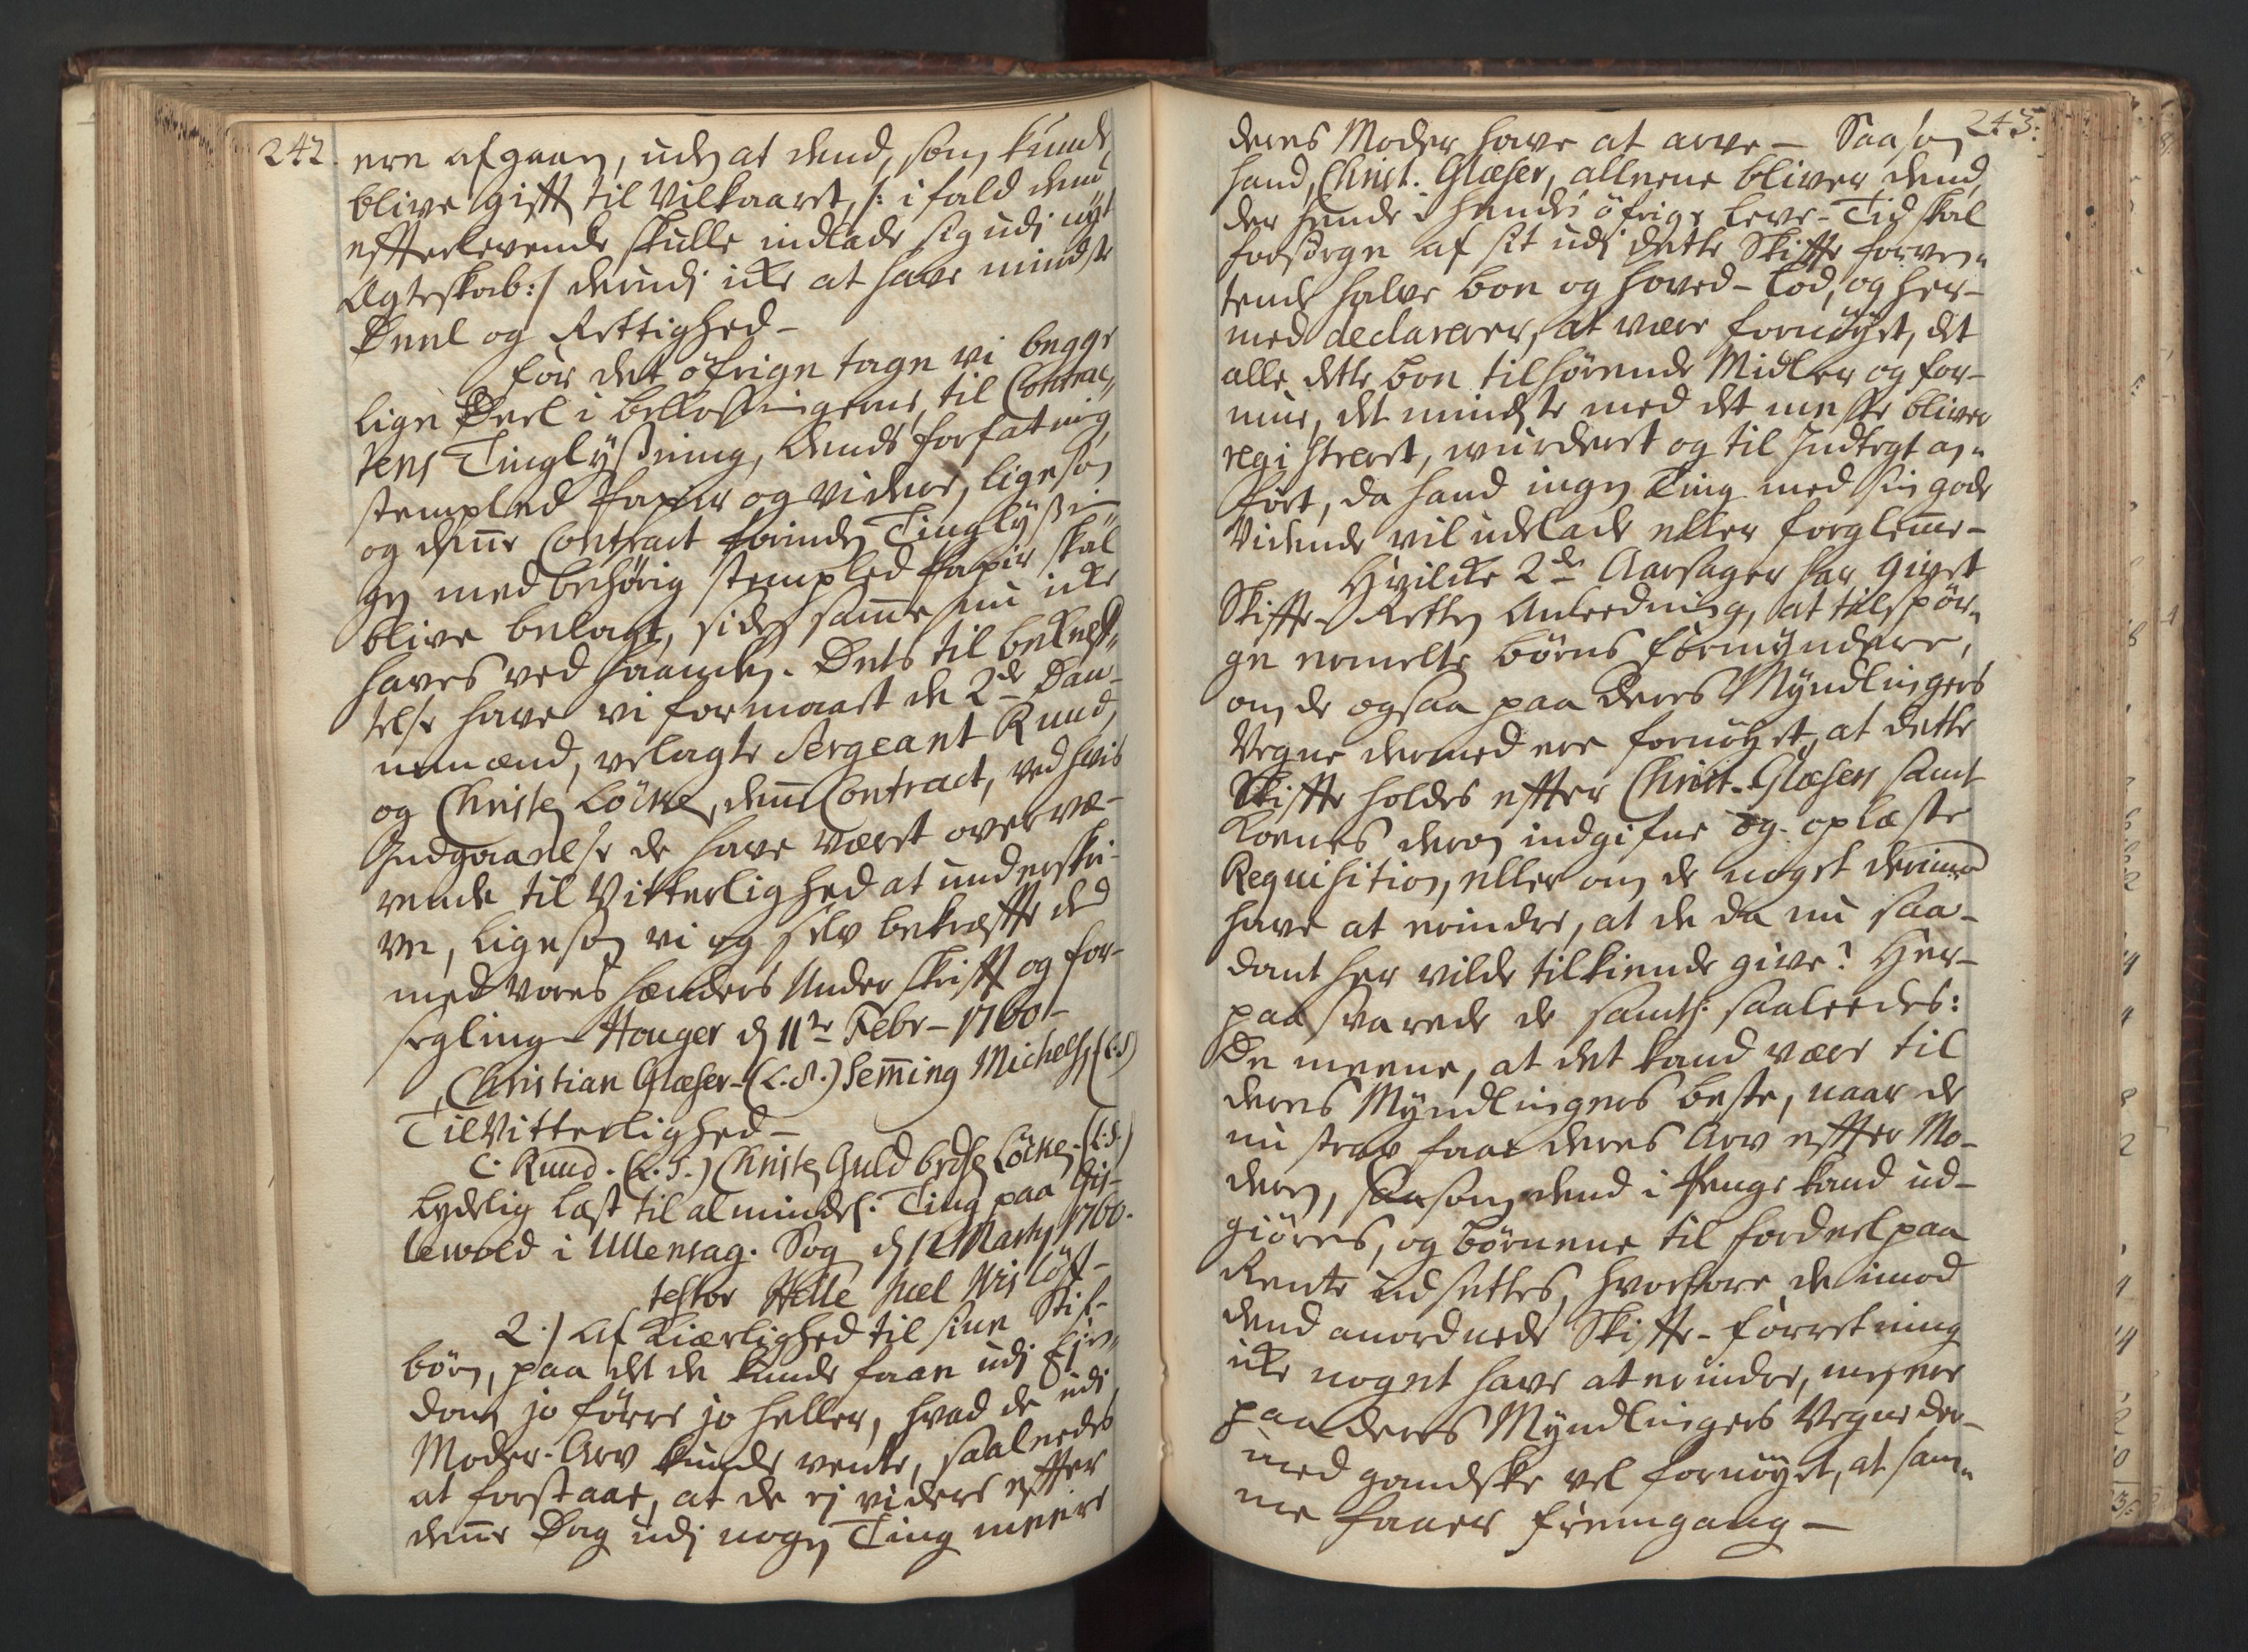 242.
ere afgaaen, uden at dend, som kunde
blive gifft til Vilkaaret, /: ifald dend
efterlevende skulle indlade sig udi nyt
Ægteskab:/ derudi icke at have mindste
Deel og Rettighed-
For det öfrige tage vi begge
lige Deel i bekostningerne, til Contrac„
tens Tinglysning, dends forfatning,
stemplet Papiir og videre, ligesom
og denne Contract forinden Tinglysnin„
gen med behörig stemplet Papiir skal
blive belagt, siden samme nu icke
haves ved haanden. Dets til bekræf„
telse have vi formaaet de 2de Dan-
nemænd, velagte Sergeant Ruud,
og Christen Löcke, denne Contract, ved hvis
Indgaaelse de have været overvæ-
rende til Vitterlighed at underskri-
ve, ligesom vi og selv bekræffte det
med vores hænders Underskrifft og for-
segling- Houger d 11te Febr- 1760-
Christian Glæser-(L.S.) Hemming Michelsen (L.S)
Til Vitterlighed-
C. Ruud. (L.S.) Christen Guldbrdsen Löcken. (L.S.)
Lydelig læst til almindel: Ting paa Gis-
lewold i Ullensag. Sog. d 12 Marty 1760.
testor Helle Juel Wislöff-
2./ Af Kiærlighed til sine Stif-
börn, paa det de kunde faae udi Eien„
dom jo förre jo heller, hvad de udi
Moder-Arv kunde vente, saaledes
at forstaae, at de ej videre effter
denne Dag udi nogen Ting meere
243.
deres Moder have at arve- Saasom
hand, Christ. Glæser, alleene bliver dend,
der hende i hendes öfrige Leve-Tid skal
forsörge af sit udi dette Skiffte forven„
tende halve boe og hoved-Lod, og her-
med declarerer, at være fornöyet, at
alle dette boe tilhörende Midler og for-
mue, det mindste med det meste bliver
registreret, wurderet og til Indtegt an„
fört, da hand ingen Ting med sin gode
Vidende vil udelade eller forglemme-
Hvilcke 2de Aarsager har givet
Skiffte-Retten Anleedning, at tilspör„
ge ermelte börns formyndere,
om de ogsaa paa deres Myndlingers
Vegne dermed ere fornöyet, at dette
Skiffte holdes effter Christ. Glæsers samt
Konens derom indgifne og oplæste
Requisition, eller om de noget derimod
have at erindre, at de da nu saa-
dant her vilde tilkiende give? Her-
paa svarede de samtl: saaleedes:
De meene, at det kand være til
deres Myndlingers beste, naar de
nu strax faae deres Arv effter Mo-
deren, saasom dend i Penge kand ud-
giöres, og börnene til fordeel paa
Rente udsettes, hvorfore de imod
dend anordnede Skiffte-Forretning
icke noget have at erindre, men ere
paa deres Myndlingers Vegne der-
med gandske vel fornöyet, at sam„
me faaer fremgang-